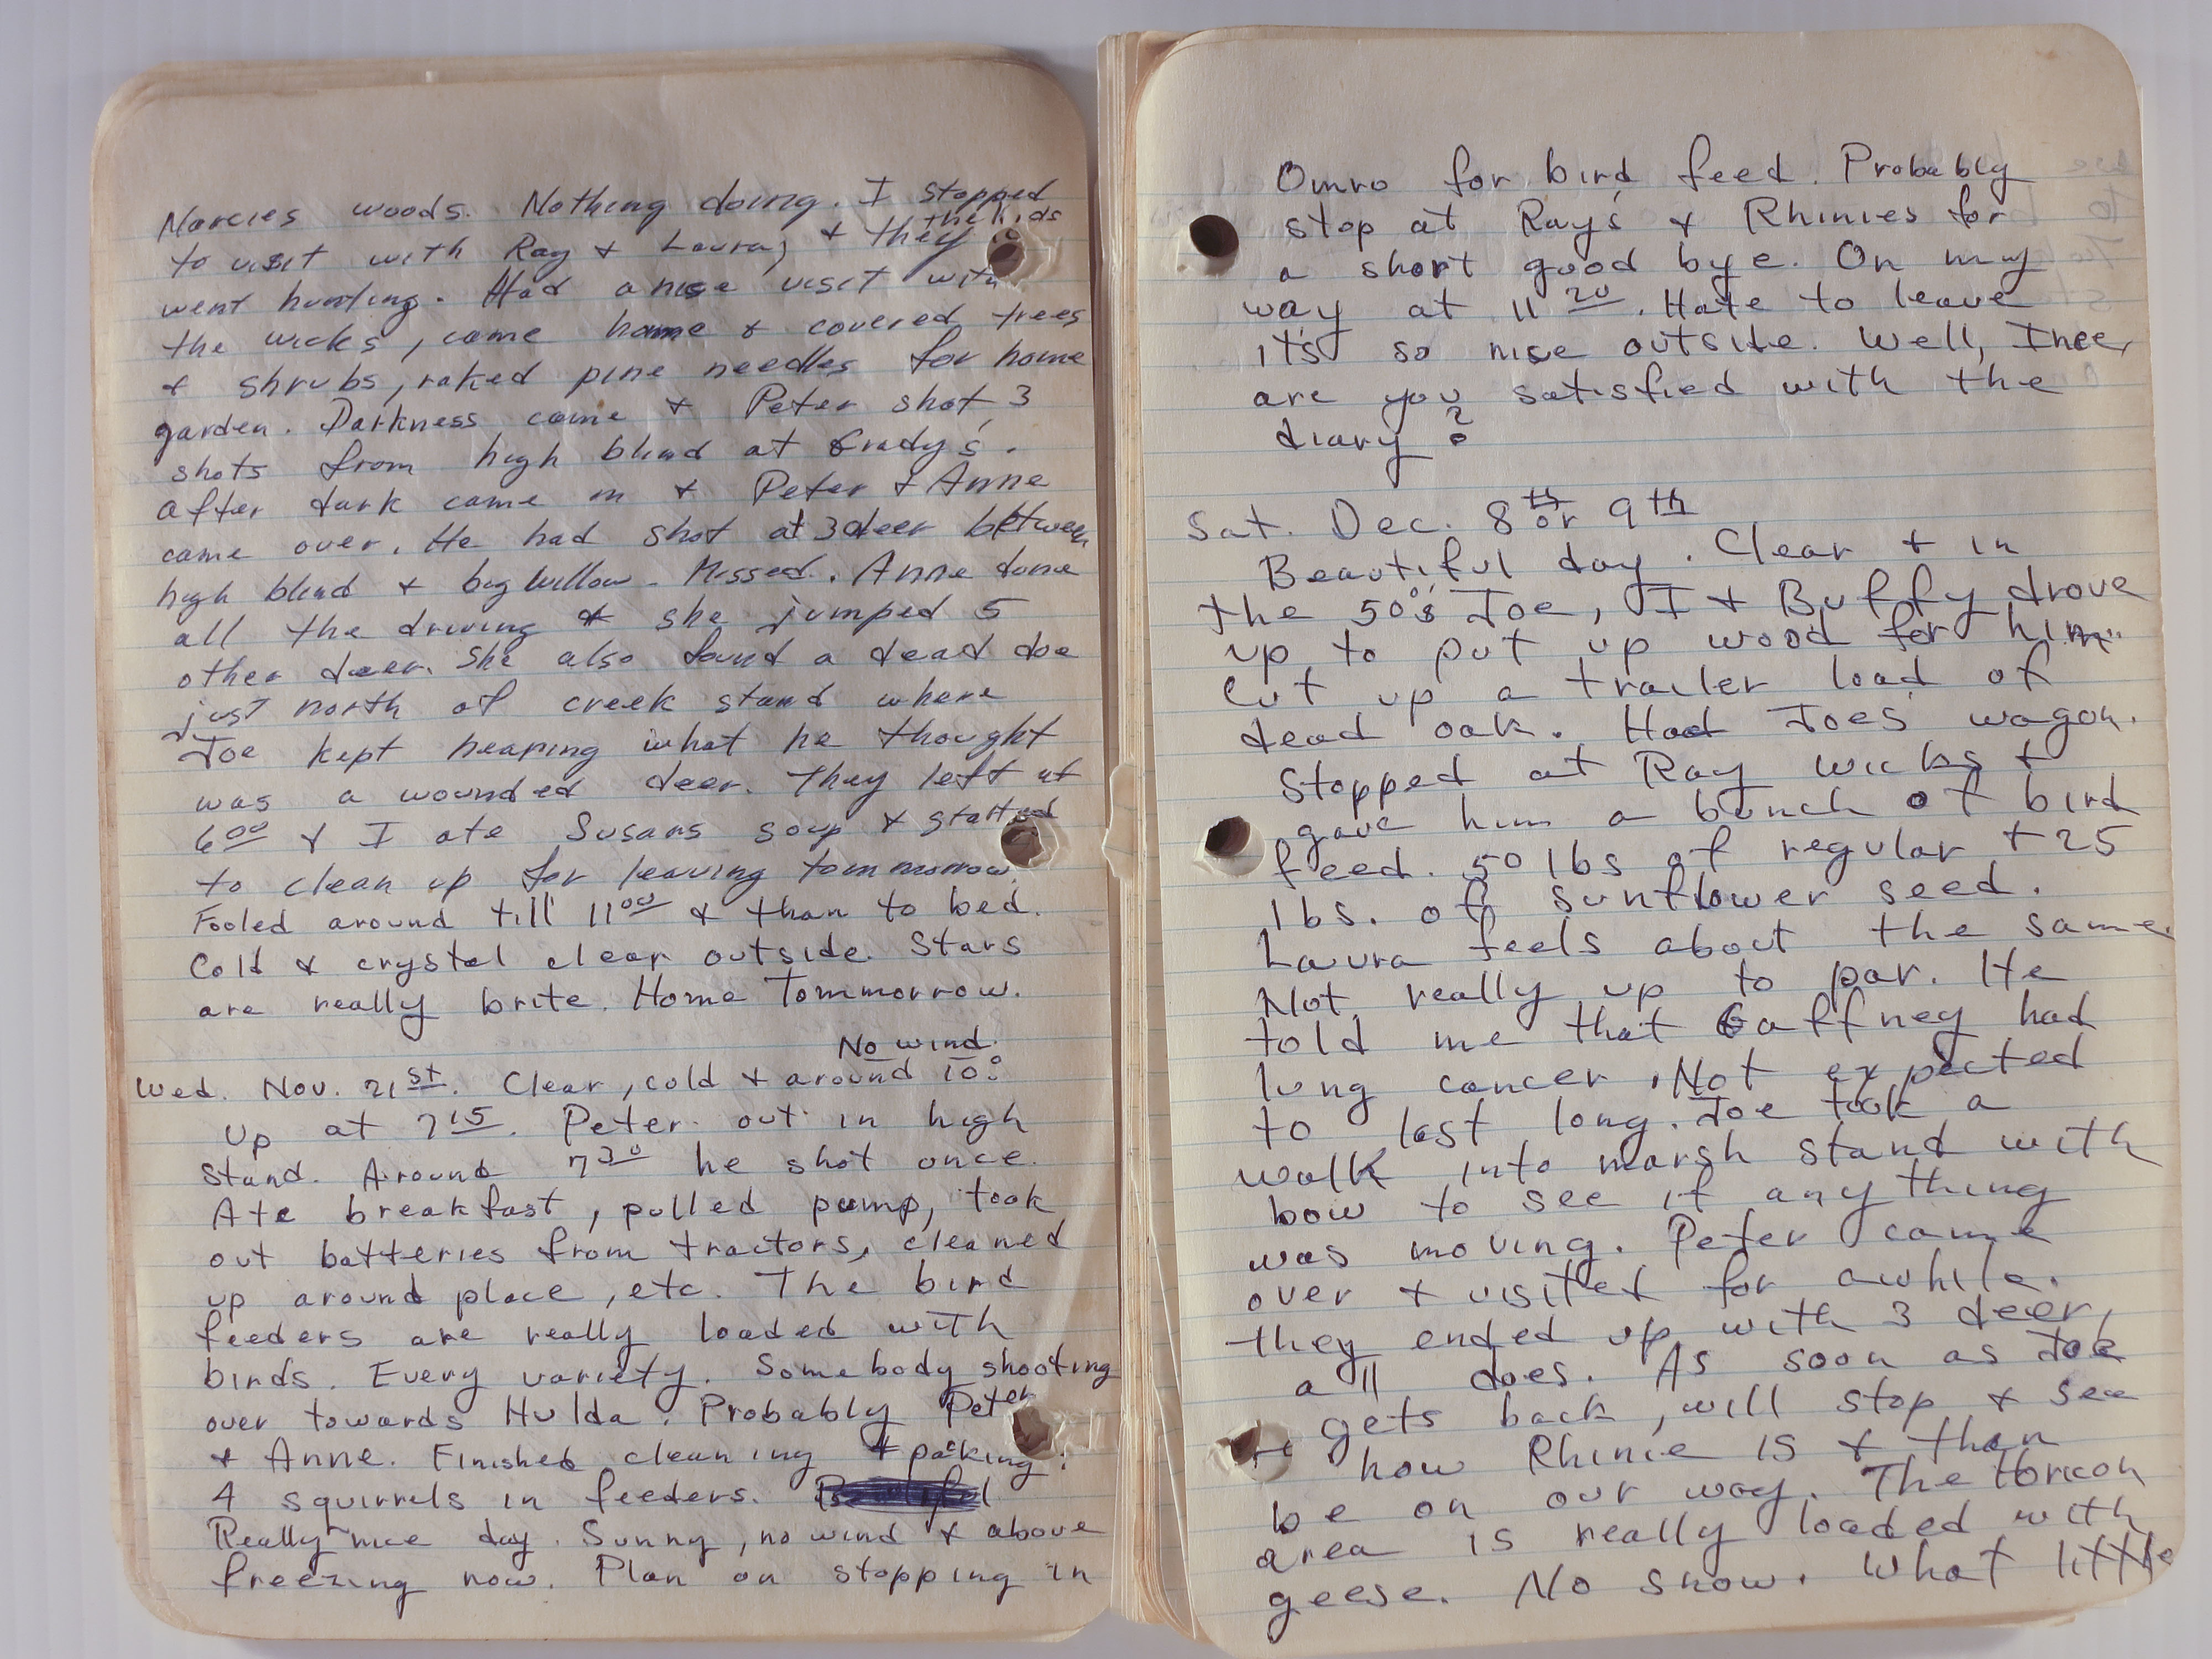 Marcies woods. Nothing doing. I stopped
to visit with Ray & Laura, & they the kids
went hunting. Had a nise visit with
the wicks, came home & covered trees
& shrubs, raked pine needles for home
garden. Darkness came & Peter shot 3
shots from high blind at Grady's.
After dark came in & Peter & Anne
came over. He had shot at 3 deer between
high blind & big willow. Missed. Anne done
all the driving & she jumped 5
other deer. She also found a dead doe
just north of creek stand where
Joe kept hearing what he thought
was a wounded deer. They left at
6 00 & I ate Susans soup & started
to clean up for leaving tommorrow.
Fooled around till 11 00 & than to bed.
Cold & crystal clear outside. Stars
are really brite. Home Tommorrow.
No wind.
Wed. Nov. 21st. Clear, cold & around 10°.
Up at 7 15. Peter out in high
stand. Around 7 30 he shot once.
Ate breakfast, pulled pump, took
out batteries from tractors, cleaned
up around place, etc. The bird
feeders are really loaded with
birds. Every variety. Somebody shooting
over towards Hulda. Probably Peter
& Anne. Finished cleaning & packing.
4 squirrels in feeders.
Really nice day. Sunny, no wind & above
freezing now. Plan on stopping in
Omro for bird feed. Probably
stop at Ray's & Rhinies for
a short good bye. On my
way at 11 20. Hate to leave
it's so nise outside. Well, Inee,
are you satisfied with the
diary?
Sat. Dec. 8th or 9th
Beautiful day. Clear & in
the 50°'s Joe, I & Buffy drove
up to put up wood for him.
Cut up a trailer load of
dead oak. Had Joes wagon.
Stopped at Ray Wicks &
gave him a bunch of bird
feed. 50 lbs of regular + 25
lbs. of sunflower seed.
Laura feels about the same.
Not really up to par. He
told me that Gaffney had
lung cancer. Not expected
to last long. Joe took a
walk into marsh stand with
bow to see if any thing
was moving. Peter came
over & visited for awhile.
they ended up with 3 deer,
all does. As soon as Joe
gets back, will stop & see
how Rhinie is & than
be on our way. The Horicon
area is really loaded with
geese. No snow. What little